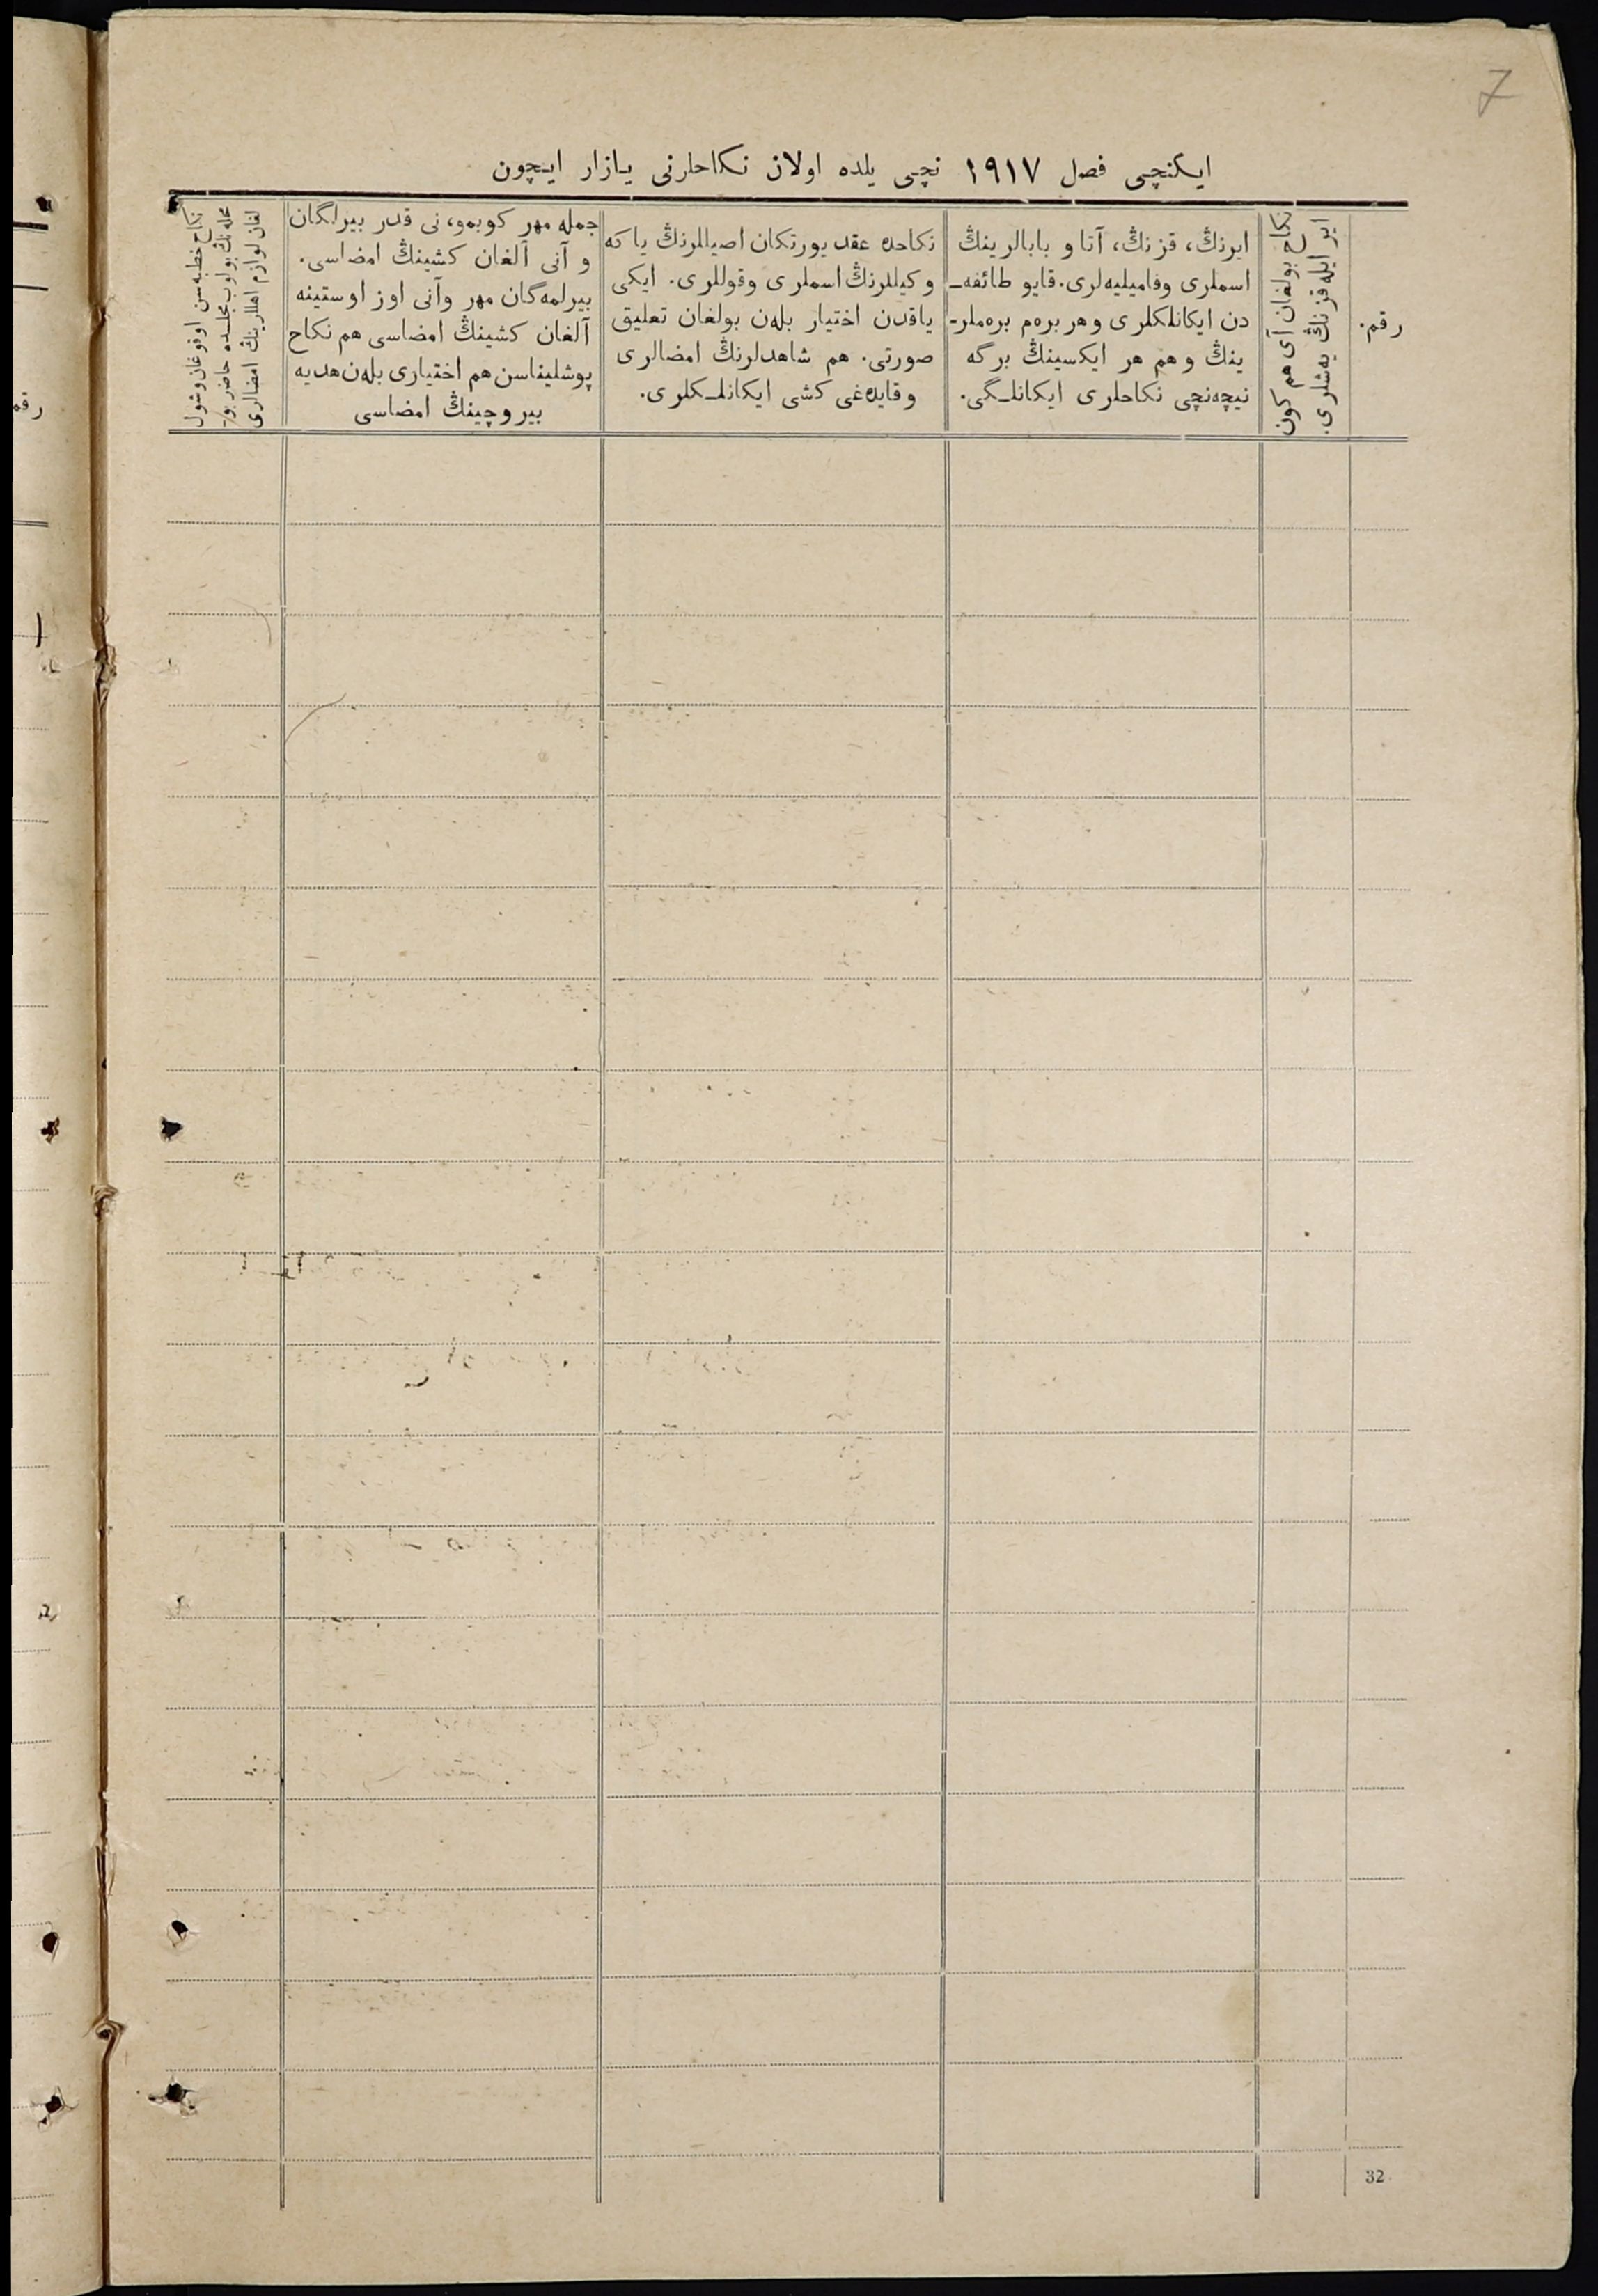 7
ایکنچی فصل ۱۹۱۷ نچی یلده اولان نکاحلرنی یازار ایچون
رقم.
ایر ایله قزنڭ یه‌شلری.
نکاح بولغان آی هم کون
ایرنڭ، قزنڭ، آتا و بابالرینڭ
اسملری وفامیلیه‌لری. قایو طائفه‌ـ
دن ایکانلکلری و هر بره‌م بره‌ملرـ
ینڭ و هم هر ایکسینڭ برگه
نیچه‌نچی نکاحلری ایکانلـگی.
نکاحده عقد یورتکان اصیللرنڭ یا که
وکیللرنڭ اسملری وقوللری. ایکی
یاقدن اختیار بله‌ن بولغان تعلیق
صورتی. هم شاهدلرنڭ امضالری
وقایده‌غی کشی ایکانلـکلری.
جمله مهر کوبمو، نی قدر بیرلگان
و آنی آلغان کشینڭ امضاسی.
بیرلمه‌گان مهر وآنی اوز اوستینه
آلغان کشینڭ امضاسی هم نکاح
پوشلیناسن هم اختیاری بله‌ن هدیه
بیروچینڭ امضاسی
نکاح خطبه‌سن اوقوغان وشول
محله‌نڭ بولوب مجلسده حاضر بوـ
لغان لوازم اهللارینڭ امضالری
رقم
32